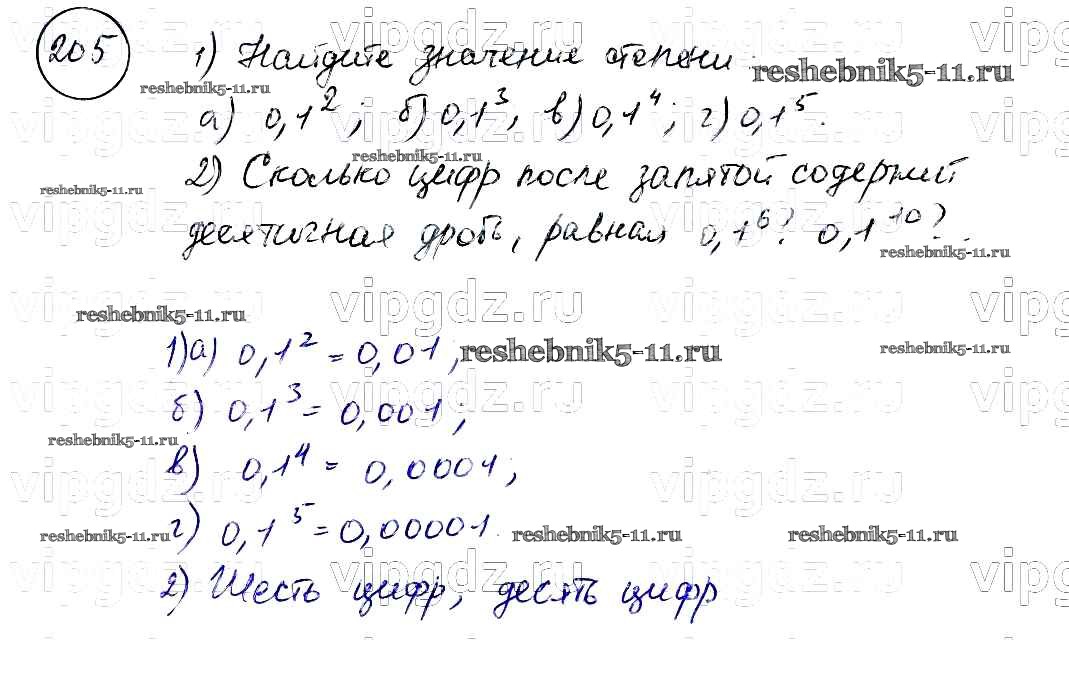 205
1) Найдите значение степени
а) 0,1²; б) 0,1³; в) 0,1⁴; г) 0,1⁵.
2) Сколько цифр после запятой содержит
десятичная дробь, равная 0,1⁶? 0,1¹⁰?.
1) а) 0,1² = 0,01;
б) 0,1³ = 0,001;
в) 0,1⁴ = 0,0001;
г) 0,1⁵ = 0,00001.
2) Шесть цифр, десять цифр
vipgdz.ru
reshebnik5-11.ru